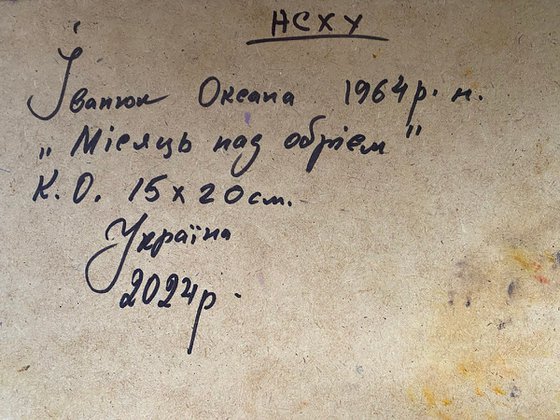 НСХУ
Іванюк Оксана 1964р. н.
„Місяць над обрієм"
К.О. 15х20см.
Україна
2024р.